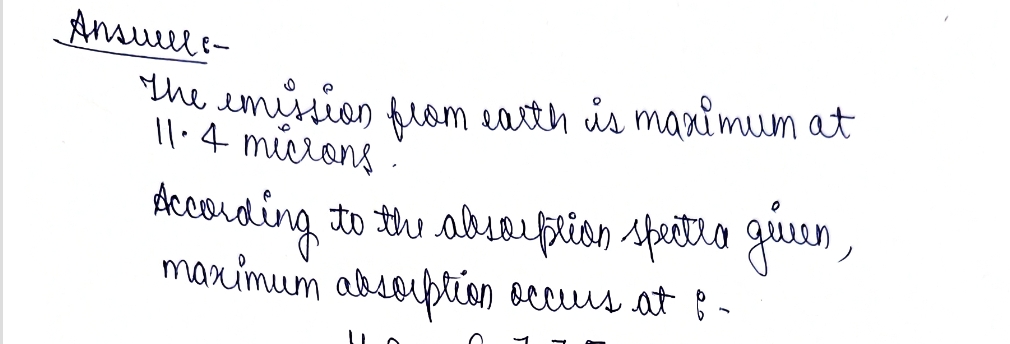 Answer:-
The emission from earth is maximum at
11.4 microns.
According to the absorption spectra given,
maximum absorption occurs at :-